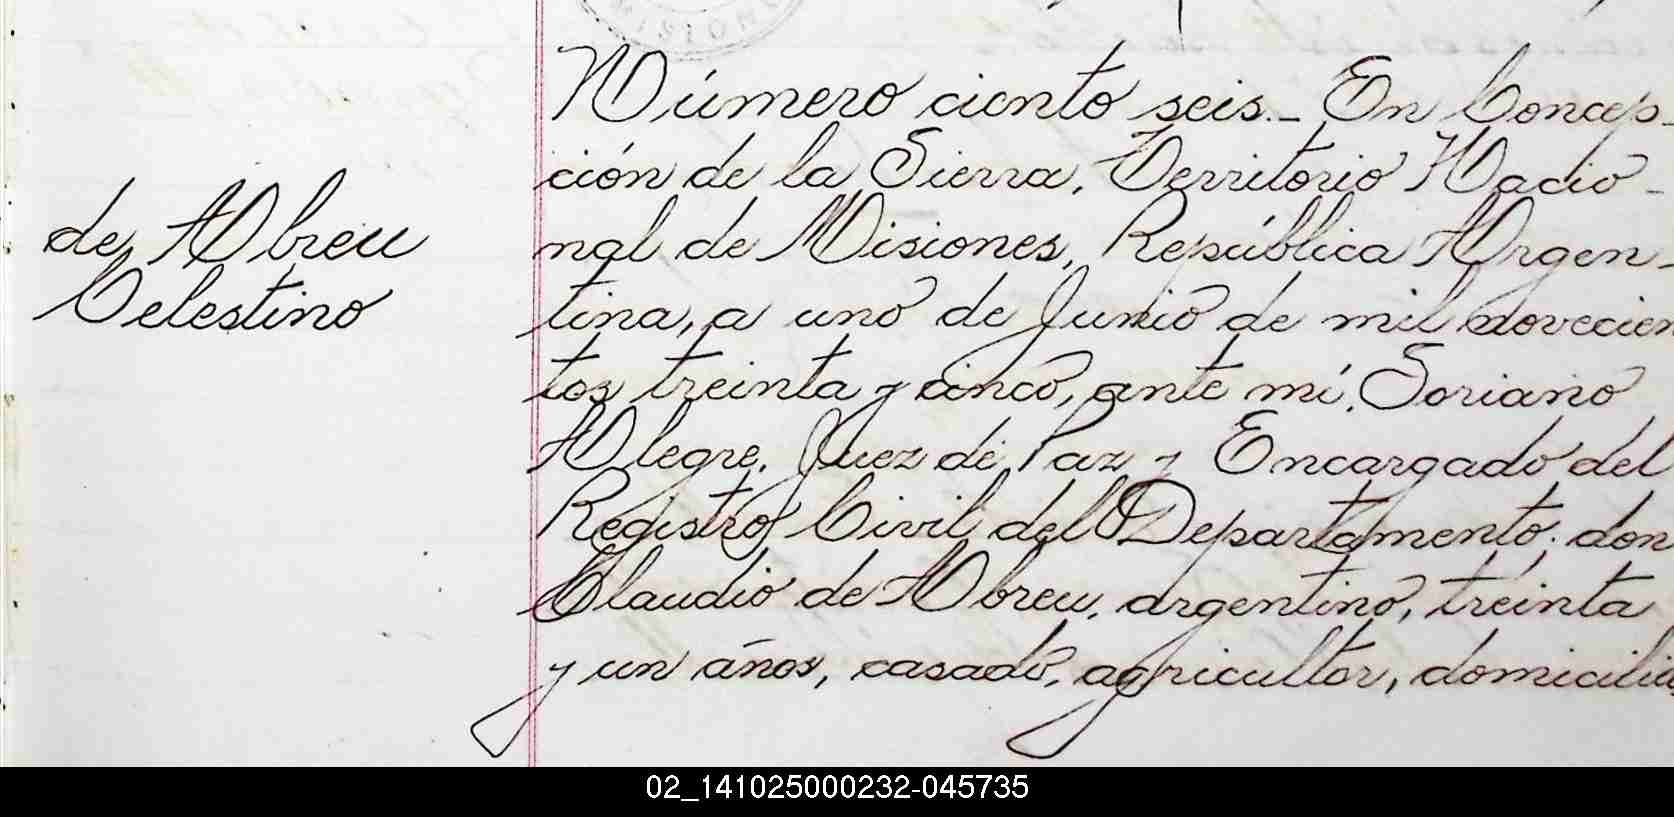 MISIONES
Número ciento seis.- En Concep-
ción de la Sierra, Territorio Nacio-
de Abreu
nal de Misiones, República Argen-
Celestino
tina, a uno de Junio de mil novecien
tos treinta y cinco, ante mí, Soriano
Alegre, Juez de Paz y Encargado del
Registro Civil del Departamento; don
Claudio de Abreu, argentino, treinta
y un años, casado, agricultor, domicilia
02_141025000232-045735